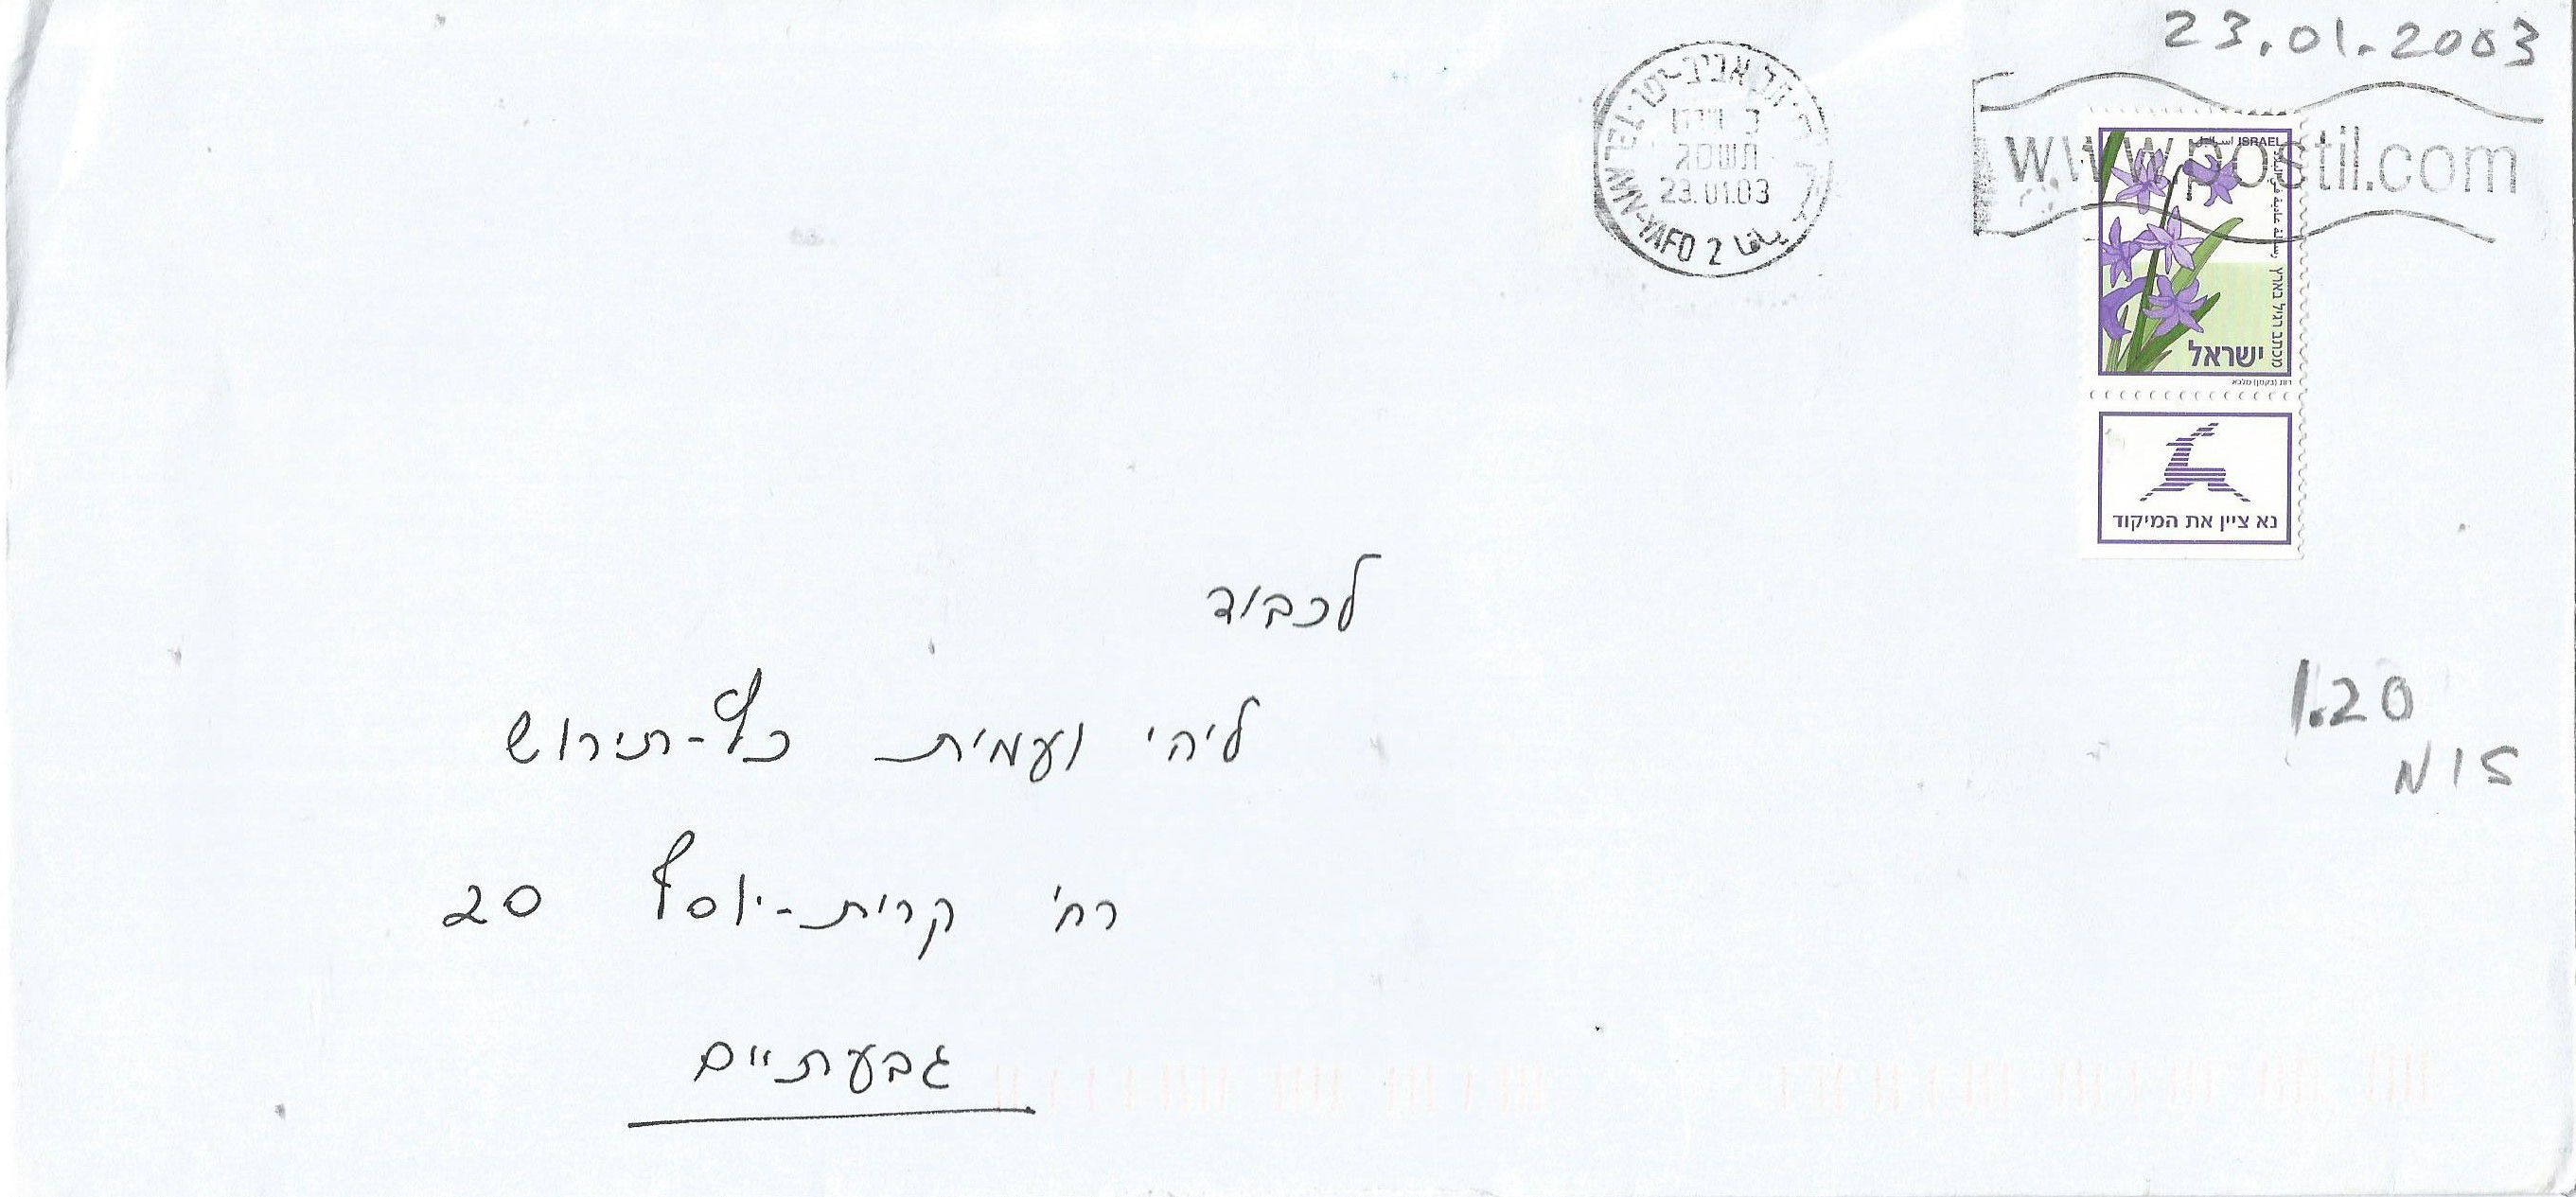 23.01.2003
תל אביב-יפו
TEL AVIV-YAFO 2 يافا
כ' שבט
תשסג
23.01.03
www.postil.com
ISRAEL اسرائيل
מכתב רגיל בארץ
ישראל
נא ציין את המיקוד
1.20
NIS
לכבוד
ליהי ועמית כץ-תירוש
רח' קרית-יוסף 20
גבעתיים